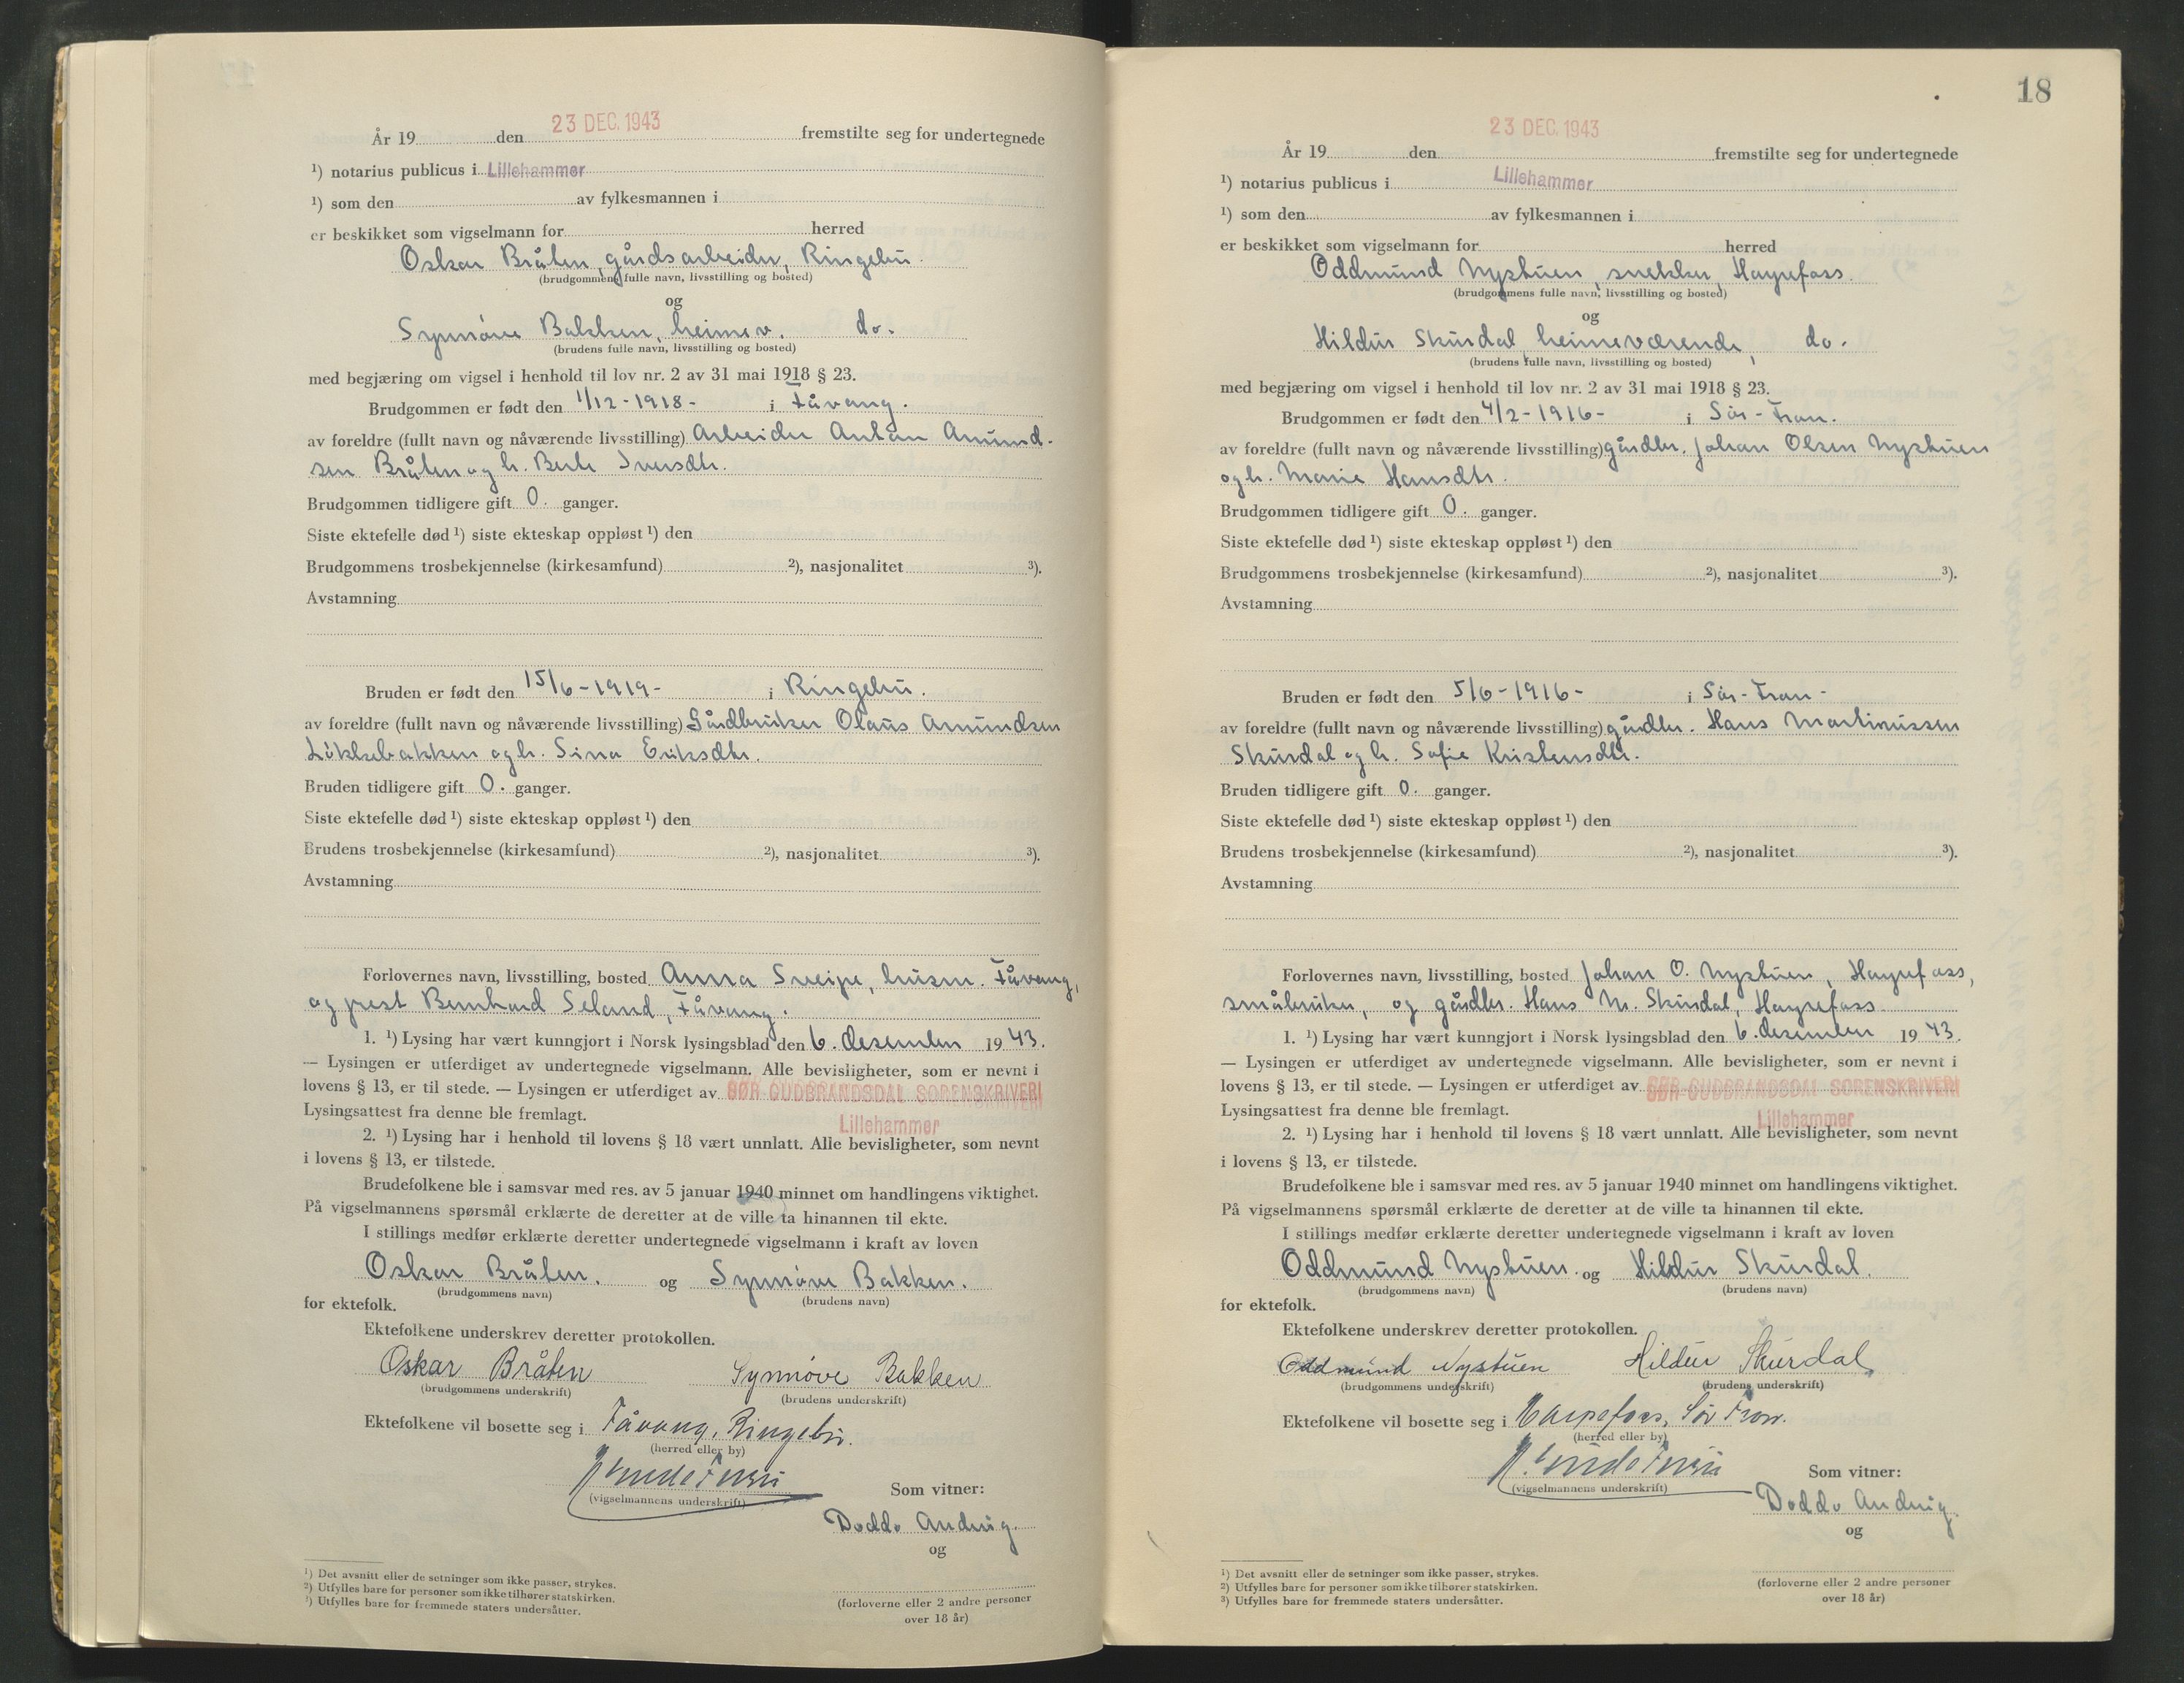 År 19 den 23 DEC. 1943 fremstilte seg for undertegnede
¹) notarius publicus i Lillehammer
¹) som den av fylkesmannen i
er beskikket som vigselmann for herred
Oskar Bråten, gårdsarbeider, Ringebu.
(brudgommens fulle navn, livsstilling og bosted)
og
Synnöve Bakken, heimev. do.
(brudens fulle navn, livsstilling og bosted)
med begjæring om vigsel i henhold til lov nr. 2 av 31 mai 1918 § 23.
Brudgommen er født den 1/12-1918- i Fåvang.
av foreldre (fullt navn og nåværende livsstilling) Arbeider Anton Amund-
sen Bråten og h. Berte Iversdtr.
Brudgommen tidligere gift 0. ganger.
Siste ektefelle død ¹) siste ekteskap oppløst ¹) den
Brudgommens trosbekjennelse (kirkesamfund) ²), nasjonalitet ³).
Avstamning
Bruden er født den 15/6-1919- i Ringebu.
av foreldre (fullt navn og nåværende livsstilling) Gårdbruker Olaus Amundsen
Lökkebakken og h. Sina Eriksdtr.
Bruden tidligere gift 0. ganger.
Siste ektefelle død ¹) siste ekteskap oppløst ¹) den
Brudens trosbekjennelse (kirkesamfund) ²), nasjonalitet ³).
Avstamning
Forlovernes navn, livsstilling, bosted Anna Sveipe, husm. Fåvang,
og prest Bernhard Seland, Fåvang.
1. ¹) Lysing har vært kunngjort i Norsk lysingsblad den 6. desember 1943.
— Lysingen er utferdiget av undertegnede vigselmann. Alle bevisligheter, som er nevnt i
lovens § 13, er til stede. — Lysingen er utferdiget av SØR-GUDBRANDSDAL SORENSKRIVERI
Lysingsattest fra denne ble fremlagt.
Lillehammer
2. ¹) Lysing har i henhold til lovens § 18 vært unnlatt. Alle bevisligheter, som nevnt
i lovens § 13, er tilstede.
Brudefolkene ble i samsvar med res. av 5 januar 1940 minnet om handlingens viktighet.
På vigselmannens spørsmål erklærte de deretter at de ville ta hinannen til ekte.
I stillings medfør erklærte deretter undertegnede vigselmann i kraft av loven
Oskar Bråten. og Synnöve Bakken.
(brudgommens navn) (brudens navn)
for ektefolk.
Ektefolkene underskrev deretter protokollen.
Oskar Bråten Synnöve Bakken
(brudgommens underskrift) (brudens underskrift)
Ektefolkene vil bosette seg i Fåvang, Ringebu.
(herred eller by)
(vigselmannens underskrift)
Som vitner:
Doddo Andvig.
og
(forloverne eller 2 andre personer
over 18 år)
¹) Det avsnitt eller de setninger som ikke passer, strykes.
²) Utfylles bare for personer som ikke tilhører statskirken.
³) Utfylles bare for fremmede staters undersåtter.
18
År 19 den 23 DEC. 1943 fremstilte seg for undertegnede
¹) notarius publicus i Lillehammer
¹) som den av fylkesmannen i
er beskikket som vigselmann for herred
Oddmund Nystuen, snekker, Harpefoss.
(brudgommens fulle navn, livsstilling og bosted)
og
Hildur Skurdal, heimeværende, do.
(brudens fulle navn, livsstilling og bosted)
med begjæring om vigsel i henhold til lov nr. 2 av 31 mai 1918 § 23.
Brudgommen er født den 4/2-1916- i Sör-Fron.
av foreldre (fullt navn og nåværende livsstilling) gårdbr. Johan Olsen Nystuen
og h. Marie Hansdtr.
Brudgommen tidligere gift 0. ganger.
Siste ektefelle død ¹) siste ekteskap oppløst ¹) den
Brudgommens trosbekjennelse (kirkesamfund) ²), nasjonalitet ³).
Avstamning
Bruden er født den 5/6-1916- i Sör-Fron-
av foreldre (fullt navn og nåværende livsstilling) gårdbr. Hans Martinussen
Skurdal og h. Sofie Kristensdtr.
Bruden tidligere gift 0. ganger.
Siste ektefelle død ¹) siste ekteskap oppløst ¹) den
Brudens trosbekjennelse (kirkesamfund) ²), nasjonalitet ³).
Avstamning
Forlovernes navn, livsstilling, bosted Johan O. Nystuen, Harpefoss,
småbruker, og gårdbr. Hans M. Skurdal, Harpefoss.
1. ¹) Lysing har vært kunngjort i Norsk lysingsblad den 6. desember 1943.
— Lysingen er utferdiget av undertegnede vigselmann. Alle bevisligheter, som er nevnt i
lovens § 13, er til stede. — Lysingen er utferdiget av SØR-GUDBRANDSDAL SORENSKRIVERI
Lysingsattest fra denne ble fremlagt.
Lillehammer
2. ¹) Lysing har i henhold til lovens § 18 vært unnlatt. Alle bevisligheter, som nevnt
i lovens § 13, er tilstede.
Brudefolkene ble i samsvar med res. av 5 januar 1940 minnet om handlingens viktighet.
På vigselmannens spørsmål erklærte de deretter at de ville ta hinannen til ekte.
I stillings medfør erklærte deretter undertegnede vigselmann i kraft av loven
Oddmund Nystuen. og Hildur Skurdal.
(brudgommens navn) (brudens navn)
for ektefolk.
Ektefolkene underskrev deretter protokollen.
Oddmund Nystuen Hildur Skurdal
(brudgommens underskrift) (brudens underskrift)
Ektefolkene vil bosette seg i Harpefoss, Sör Fron.
(herred eller by)
(vigselmannens underskrift)
Som vitner:
Doddo Andvig.
og
(forloverne eller 2 andre personer
over 18 år)
¹) Det avsnitt eller de setninger som ikke passer, strykes.
²) Utfylles bare for personer som ikke tilhører statskirken.
³) Utfylles bare for fremmede staters undersåtter.